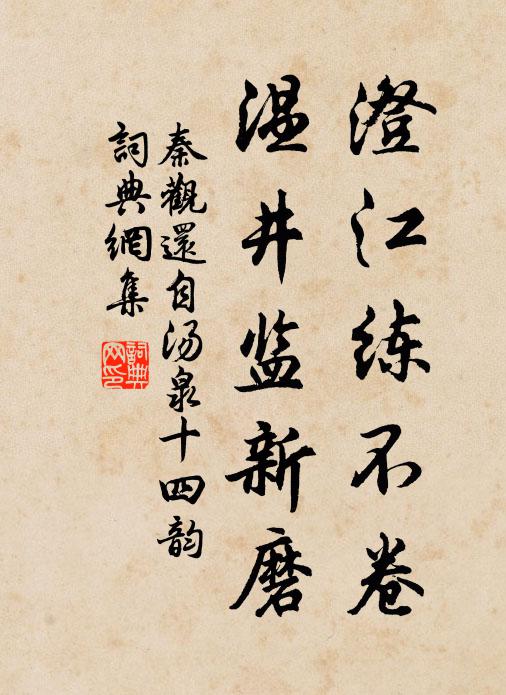 澄江练不卷
温井监新磨
秦觀還自汤泉十四韵
詞典網集
詞典網印